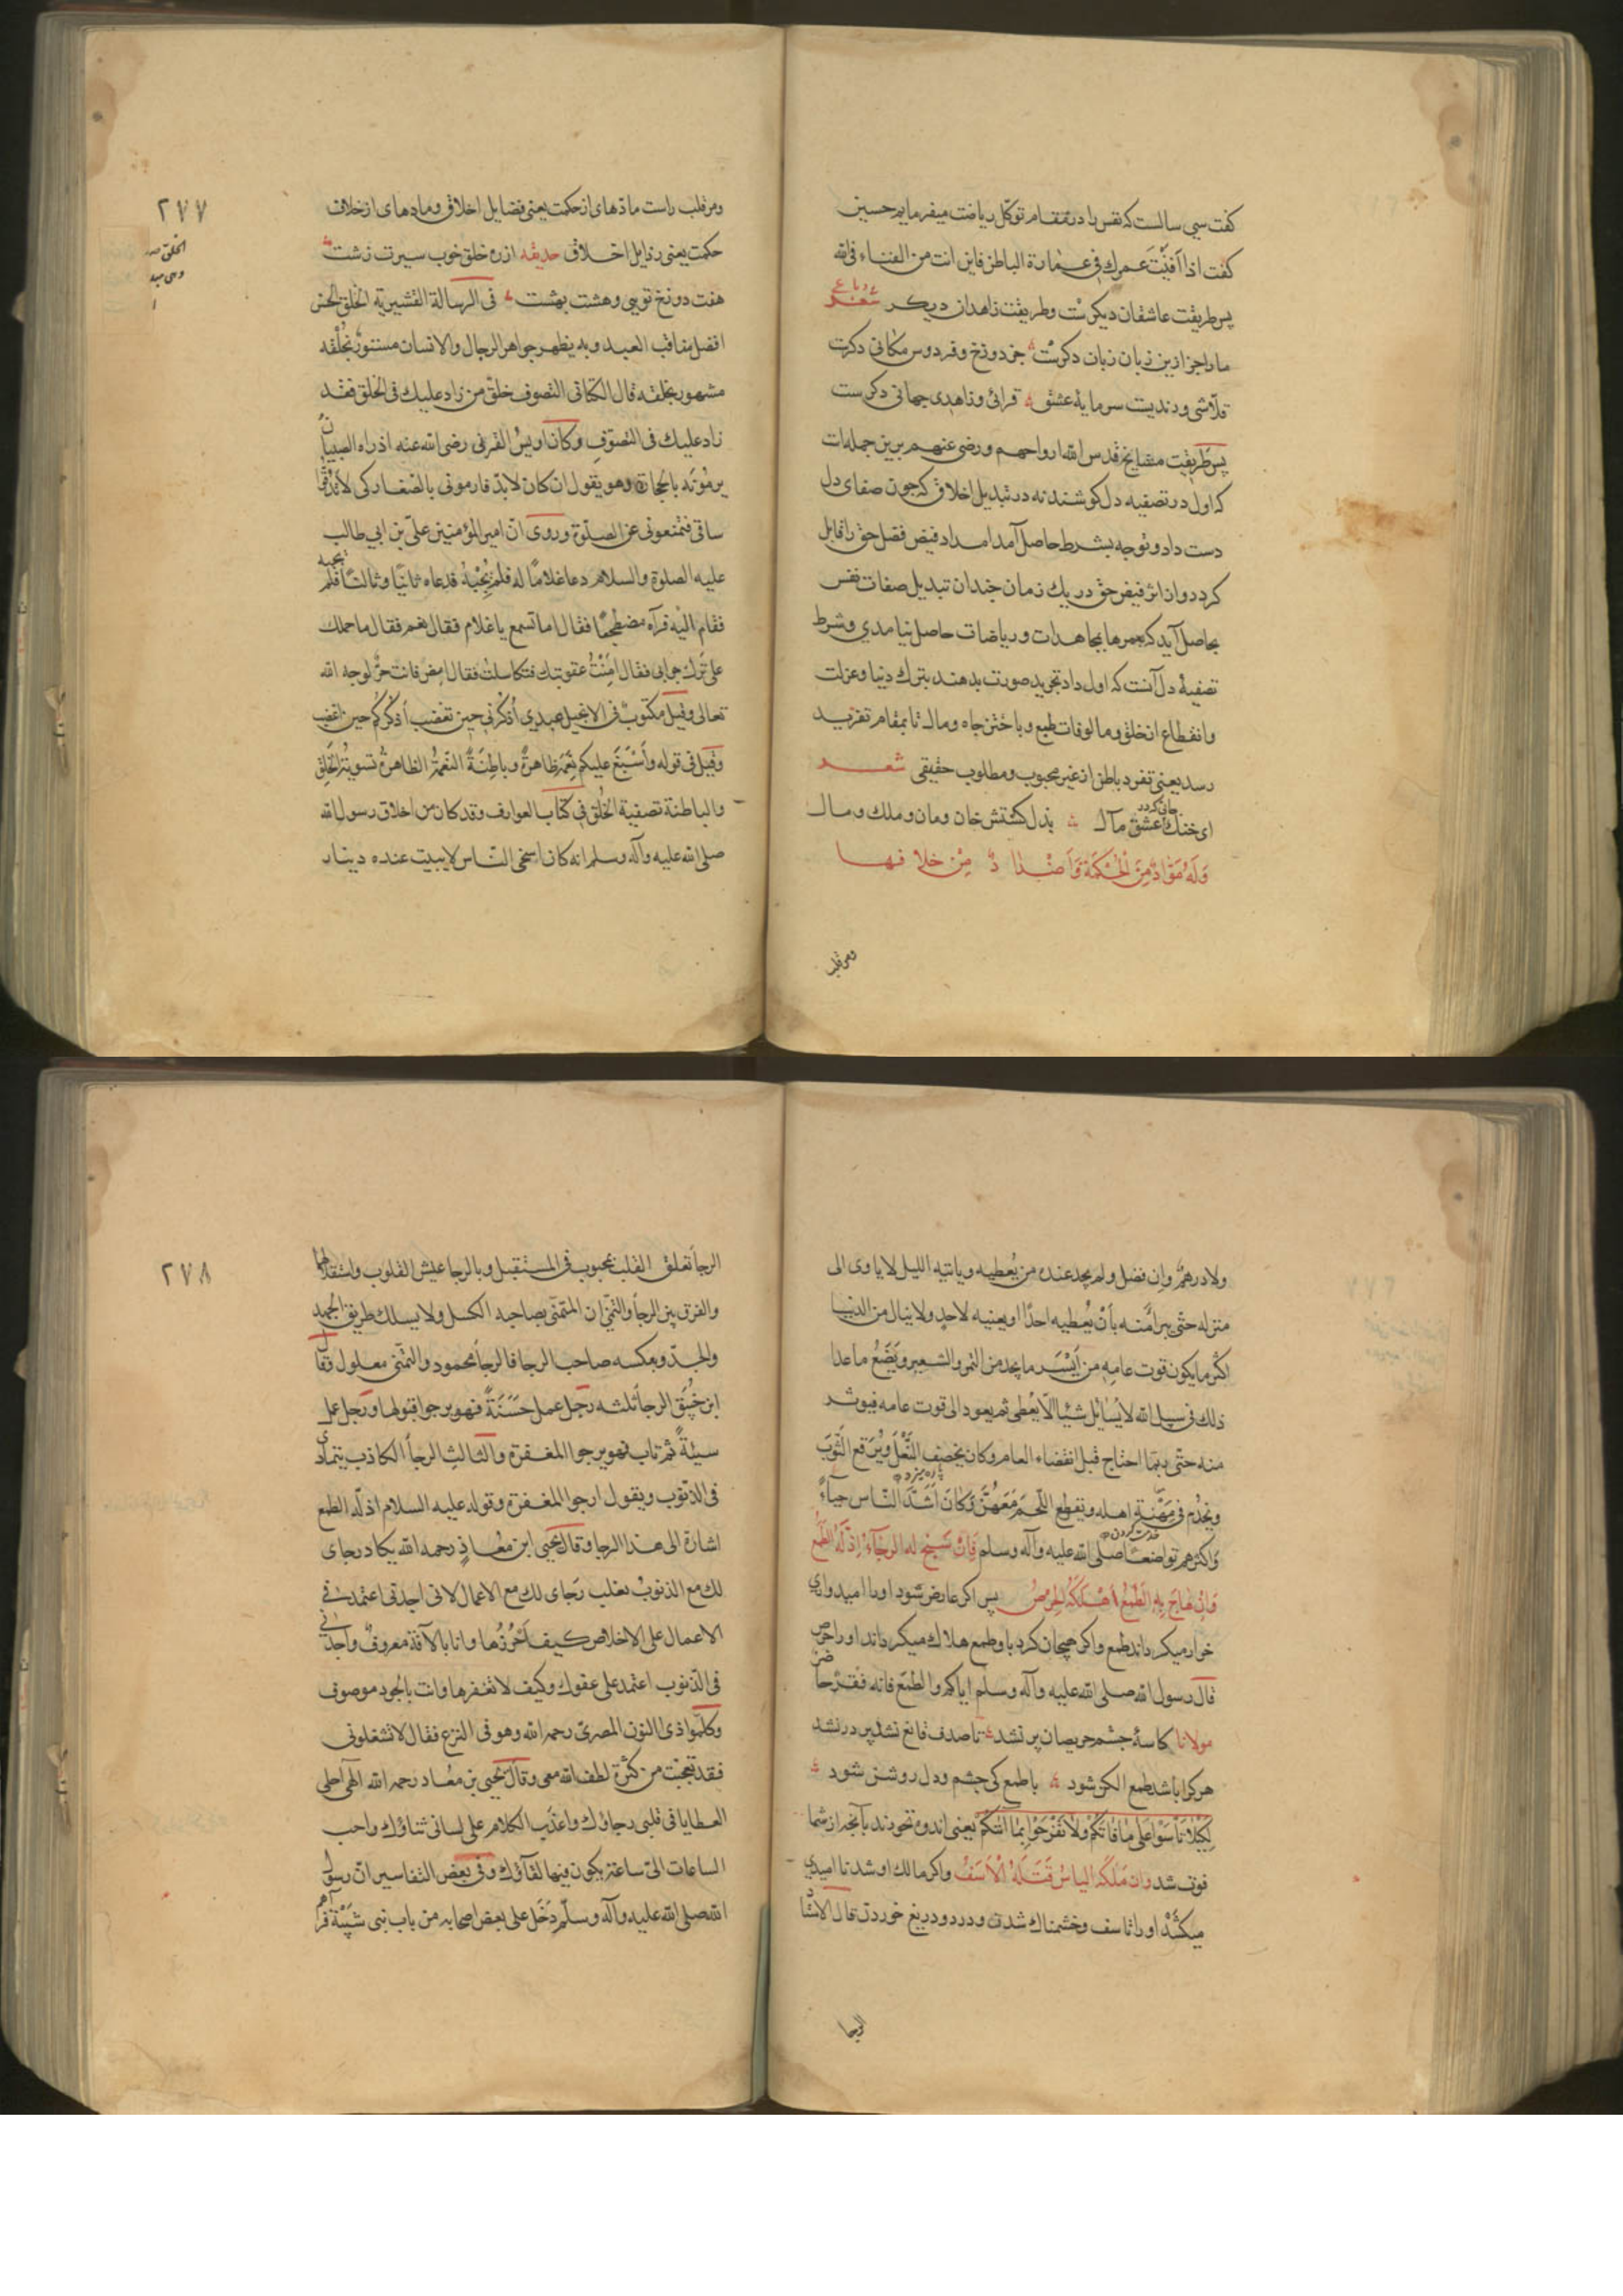 کفت سی سالست که نفس را در مقام توکل ریاضت میفرمایم حسین
کفت اذا افنیت عمرك فی عمارة الباطن فاین انت من الفناء فی الله
پس طریقت عاشقان دیکرست و طریقت زاهدان دیکر شعر رباعی
مارا جز ازین زبان زبان دکرست جز دوزخ و فردوس مکانی دکرست
قلاشی و رندیست سرمایهٔ عشق قرائی و زاهدی جهانی دکرست
پس طریقت مشایخ قدس الله ارواحهم و رضی عنهم برین جمله‌ات
که اول در تصفیه دل کوشند نه در تبدیل اخلاق که جون صفای دل
دست داد و توجه بشرط حاصل آمد امداد فیض فضل حق را قابل
کردد و از اثر فیض حق در یك زمان جندان تبدیل صفات نفس
بحاصل آید که بعمرها بمجاهدات و ریاضات حاصل نیامدی و شرط
تصفیهٔ دل آنست که اول داد تجرید صورت بدهند بترك دنیا و عزلت
و انقطاع از خلق و مالوفات طبع و باختن جاه و مال تا بمقام تفرید
رسد یعنی تفرد باطن از غیر محبوب و مطلوب حقیقی شعر
ای خنك عشق مآل بذل کشتش خان و مان و ملك و مال
وَلَهُ مَوَادٌّ مِنَ الْحِكْمَةِ وَأَضْدَادٌ مِنْ خلافها
ومر قلب
۲۷۷
ومر قلب راست مادهای از حکمت یعنی فضایل اخلاق و مادهای از خلاف
حکمت یعنی رذایل اخلاق حدیقه ازره خلق خوب سیرت زشت
هفت دوزخ تویی و هشت بهشت فی الرسالة القشیریة الخلق الحسن
افضل مناقب العبد وبه يظهر جواهر الرجال والانسان مستور بخَلْقه
مشهور بخلقه قال الكتانی التصوف خلق من زاد عليك فی الخلق فقد
زاد عليك فی التصوف وكان اويس القرنی رضی الله عنه اذ راه الصبيان
يرمونه بالحجارة وهو يقول ان كان لابد فارمونی بالصغار كی لا تدقوا
ساقی فتمنعونی عن الصلوة وروی ان امير المؤمنين علی بن ابی طالب
عليه الصلوة والسلام دعا غلاما له فلم يُجبْهُ فدعاه ثانيًا وثالثًا فلم يجبه
فقام اليه فرآه مضطجعًا فقال اما تسمع يا غلام فقال نعم فقال ما حملك
علی ترك جوابی فقال امنْتُ عقوبتك فتكاسلت فقال امض فانت حرٌّ لوجه الله
تعالی وقيل مكتوبٌ فی الانجيل عبدی اُذْكُرْنی حين تغضب أذكركُم حين اغضب
وقيل فی قوله وأسْبَغَ عليكم نِعَمَهُ ظاهرةً وباطِنَةً النّعْمَةُ الظاهرةُ تسويةُ الخَلْقِ
والباطنة تصفية الخُلق فی كتاب العوارف وقد كان من اخلاق رسول الله
صلی الله عليه وآله وسلم انه كان اسخی الناس لا يبيت عنده دينار
ولا درهمٌ وان فضل ولم يجد عنده من يُعطيه ويأتيه الليل لا ياوی الی
منزله حتّی يبرأ منه بأنْ يُعطيه احدًا او يعنيه لاحدٍ ولا ينال من الدنيا
اكثر ما يكون قوت عامه من اَيسَر ما يجد من التمر والشعير ويَضَعُ ما عدا
ذلك فی سبيل الله لا يُسائل شيئًا الّا يُعطی ثم يعود الی قوت عامه فيوثر
منه حتّی ربّما احتاج قبل انقضاء العام وكان يخصِف النّعْلَ ويُرقع الثّوبَ
ويخدُم فی مهنة اهله ويقطع اللّحمَ مَعَهُنّ وكانَ اَشَدَّ النّاس حياءً
واكثرهم تواضعًا صلی الله عليه وآله وسلم فَاِنْ سَنَحَ له الرجآءُ اِذَلّهُ الطّمع
وَاِنْ هَاجَ بِهِ الطّمَعُ أهْلَكَهُ الحِرْصُ پس اکر عارض شود اورا امیدواری
خوار میکرداند طمع و اکر هیجان کرد باو طمع هلاك میکرداند او را حرص
قال رسول الله صلی الله عليه وآله وسلم اياكم والطمَع فانه فقرٌ حاضر
مولانا کاسهٔ جشم حریصان پر نشد تا صدف قانع نشد پر در نشد
هر کرا باشد طمع الکن شود با طمع کی جشم و دل روشن شود
لِكَيْلَا تَأسَوْا عَلَی مَا فَاتَكُمْ وَلَا تَفْرَحُوا بِمَا آتٰكُمْ یعنی اندوه نخورند بآنجه از شما
فوت شد وَاِن مَلَكَهُ الياسُ قَتَلَهُ الْاَسَفُ و اکر مالك او شد ناامیدی
میکشد او را تاسف و خشمناك شدن و درد و دریغ خوردن قال الاستاذ
الرجا
۲۷۸
الرجا تعلق القلب بمحبوب فی المستقبل وبالرجا عيش القلوب واستقلالها
والفرق بين الرجا والتمنی ان المتمنّی يصاحبه الكسل ولا يسلك طريق الجهد
والجدّ وبعكسه صاحب الرجا فالرجا محمود والتمنّی معلول وقال
ابن خبيق الرجا ثلثه رجل عمل حَسَنَةً فهو يرجوا قبولها ورجل عمل
سيئةً ثم تاب فهو يرجوا المغفرة والثالث الرجا الكاذب يتمادی
فی الذّنوب ويقول ارجوا المغفرة وقوله عليه السلام اذلّه الطمع
اشارة الی هذا الرجا وقال يحيی ابن معاذ رحمه الله يكاد رجای
لك مع الذنوب يغلب رجای لك مع الاعمال لانی اجدنی اعتمد فی
الاعمال علی الاخلاص كيف اَحْرُزُها وانا بالآفة معروفٌ واجدنی
فی الذّنوب اعتمد علی عفوك وكيف لا تغفرها وانت بالجود موصوف
وكلّموا ذی النون المصری رحمه الله وهو فی النزع فقال لا تشغلونی
فقد تعجبْت من كثرة لطف الله معی وقال يحيی بن معاد رحمه الله الهی احلی
العطايا فی قلبی رجاؤك واعذب الكلام علی لسانی ثناؤك واحب
الساعات الیّ ساعة يكون فيها لقآؤك وفی بعض التفاسير انّ رسول
الله صلی الله عليه وآله وسلّم دَخَل علی بعض اصحابه من باب بنی شَيْبَة فرآهم